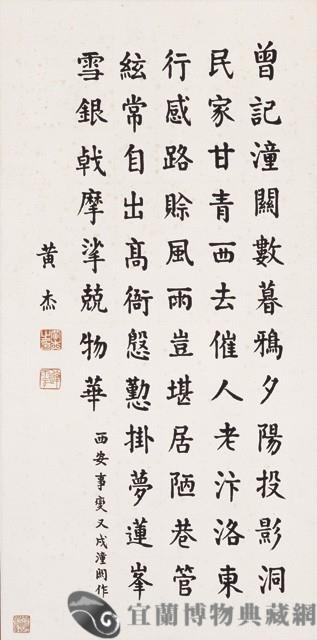 曾記潼關數暮鴉夕陽投影洞
民家甘青西去催人老汴洛東
行感路賒風雨豈堪居陋巷管
絃常自出髙衙慇懃掛夢蓮峯
雪銀戟摩挲兢物華
西安事變又戍潼関作
黃杰
宜蘭博物典藏網